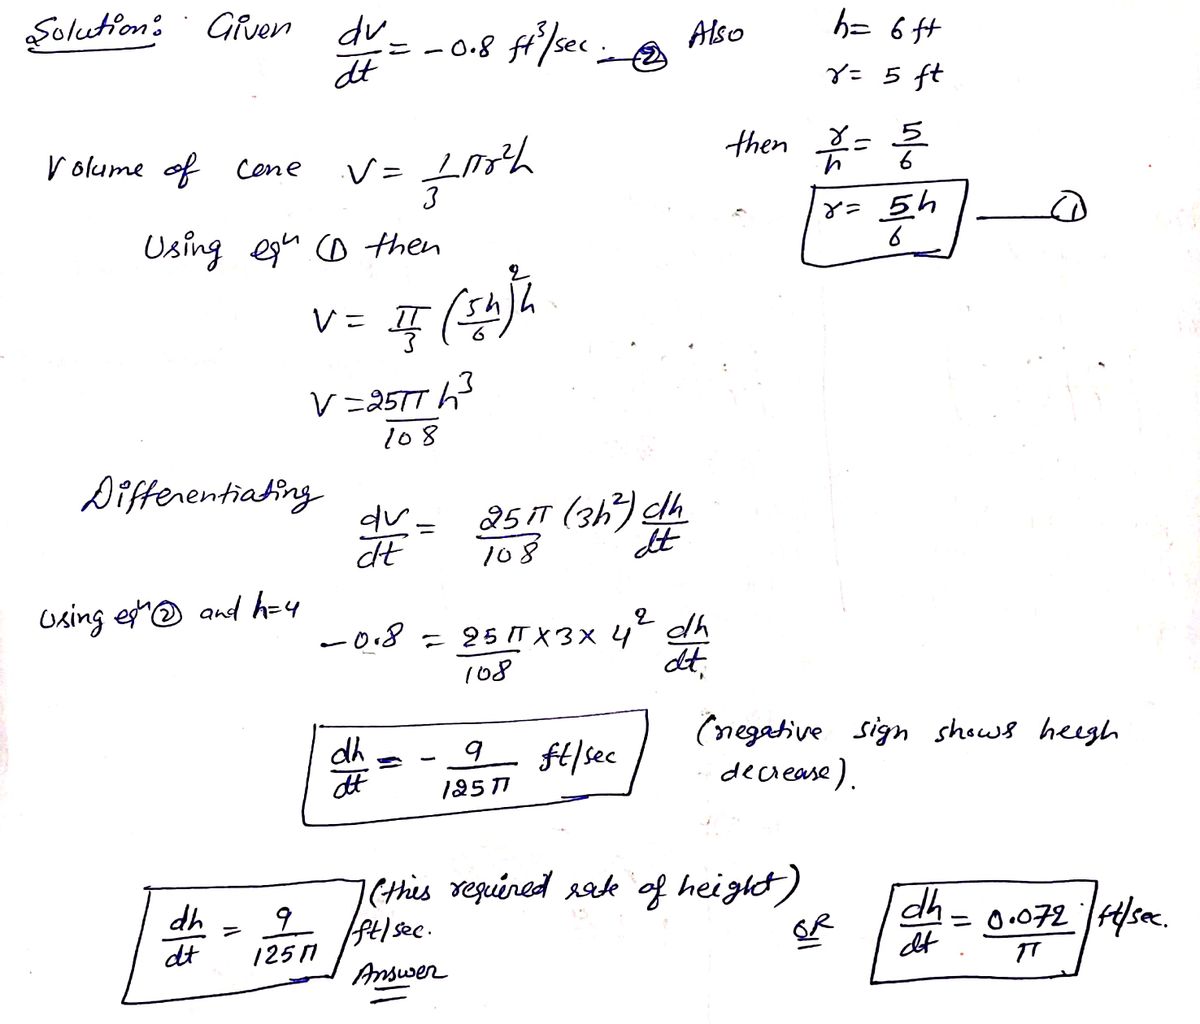 Solution: Given dv/dt = -0.8 ft³/sec. — ② Also h= 6 ft
r= 5 ft
then r/h = 5/6
r= 5h/6 — ①
Volume of cone V= 1/3 πr²h
Using eqⁿ ① then
V= π/3 (5h/6)² h
V = 25π/108 h³
Differentiating dv/dt = 25π/108 (3h²) dh/dt
Using eqⁿ ② and h=4
-0.8 = 25π/108 × 3 × 4² dh/dt.
dh/dt = - 9/125π ft/sec (negative sign shows heegh
decrease).
dh/dt = 9/125π ft/sec. (this required rate of height)
Answer
OR dh/dt = 0.072/π ft/sec.